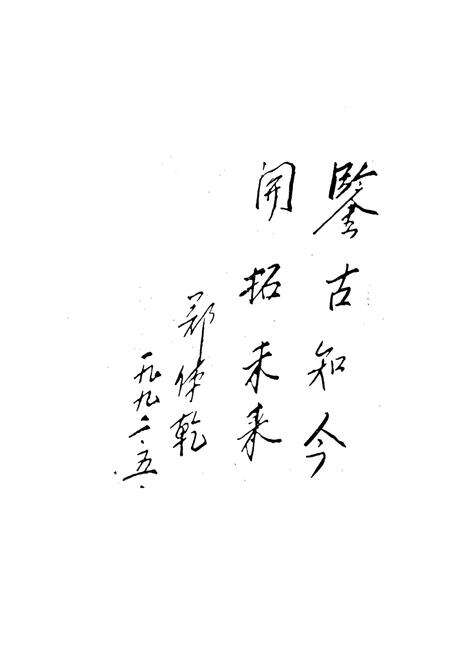 鑒古知今
開拓未来
郑体乾
一九九二.五.